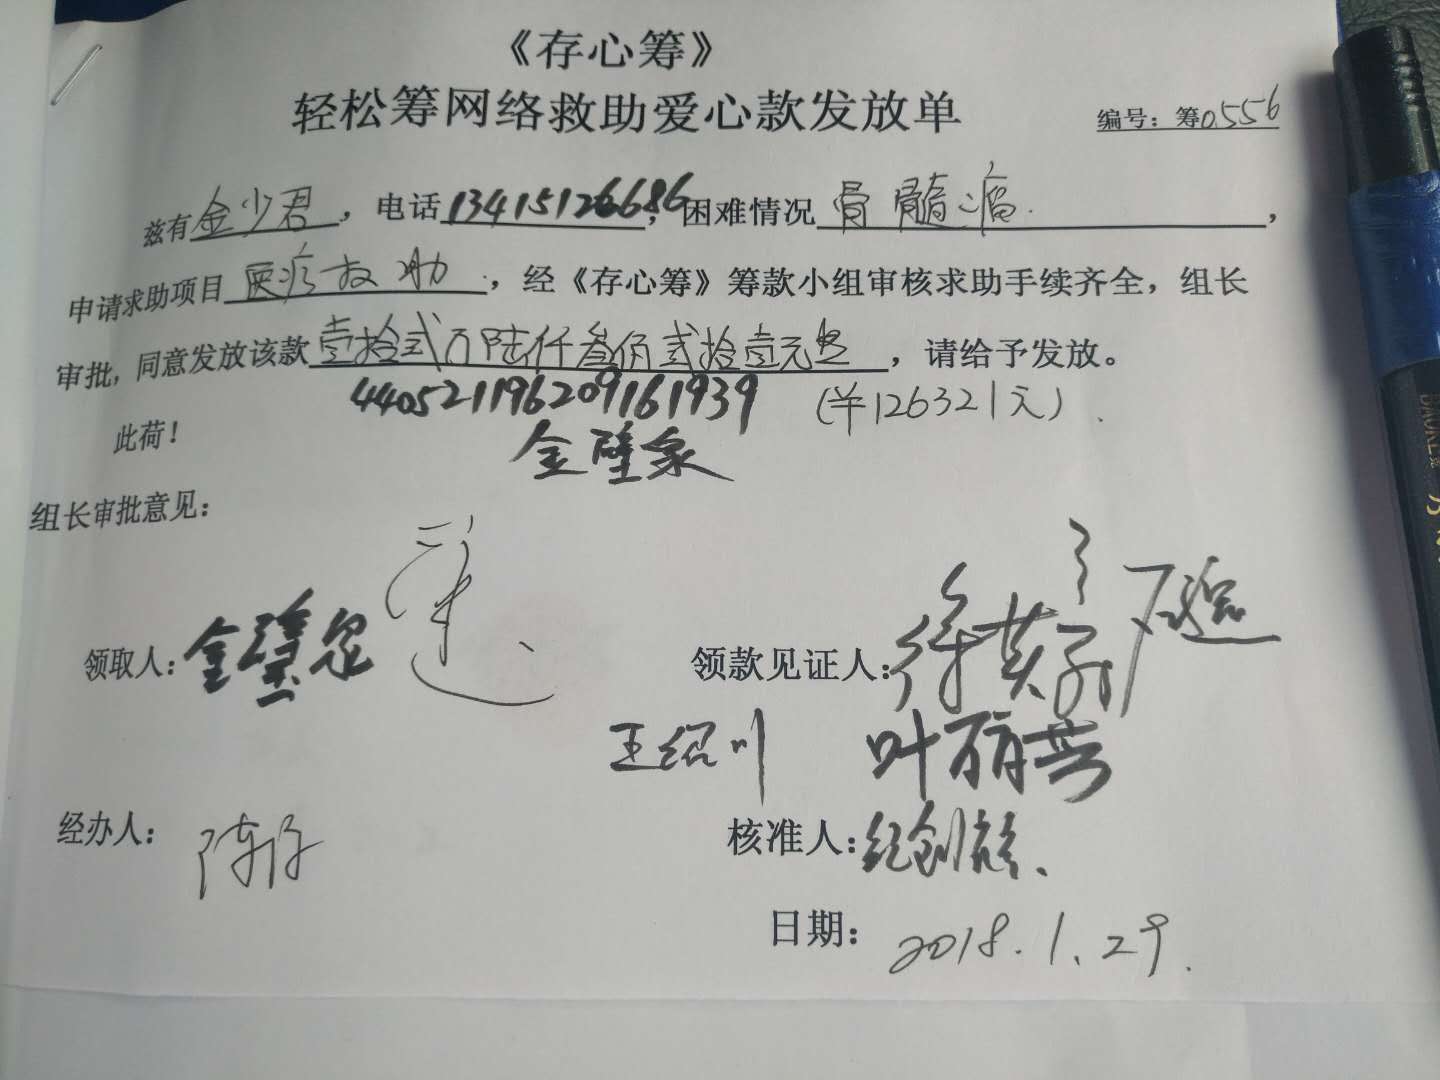 《存心筹》
轻松筹网络救助爱心款发放单
编号：筹0556
兹有金少君，电话13415126686，困难情况骨髓瘤.，
申请求助项目医疗救助，经《存心筹》筹款小组审核求助手续齐全，组长
审批，同意发放该款壹拾贰万陆仟叁佰贰拾壹元整，请给予发放。
440521196209161939 (￥126321元).
此荷！
金壁泉
组长审批意见：
领取人：金璧泉
领款见证人：徐英子
王绍川 叶丽芸
经办人：陈仔
核准人：纪创
日期：2018.1.29.